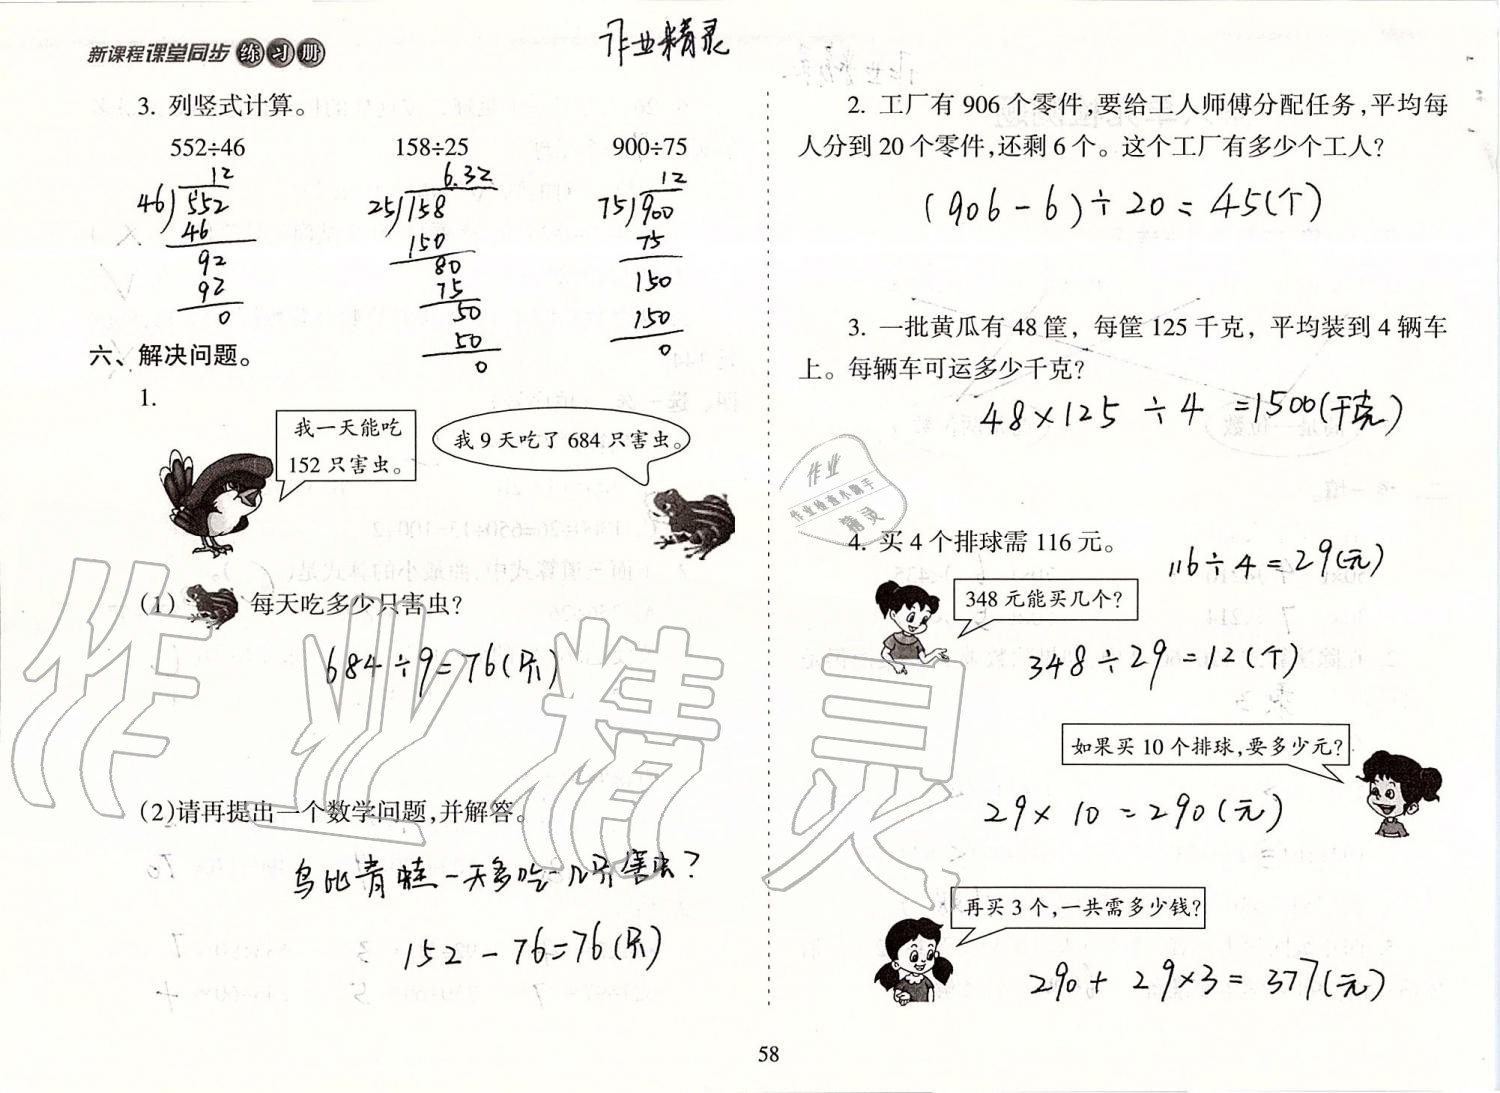 新课程课堂同步练习册
作业精灵
3. 列竖式计算。
552÷46 158÷25 900÷75
12
46 552
46
92
92
0
6.32
25 158
150
80
75
50
50
0
12
75 900
75
150
150
0
六、解决问题。
1.
我一天能吃
152 只害虫。
我 9 天吃了 684 只害虫。
(1) 每天吃多少只害虫?
684÷9=76(只)
(2)请再提出一个数学问题,并解答。
鸟比青蛙一天多吃几只害虫?
152-76=76(只)
2. 工厂有 906 个零件,要给工人师傅分配任务,平均每
人分到 20 个零件,还剩 6 个。这个工厂有多少个工人?
(906-6)÷20=45(个)
3. 一批黄瓜有 48 筐，每筐 125 千克，平均装到 4 辆车
上。每辆车可运多少千克?
48×125÷4=1500(千克)
作业
作业检查小助手
精灵
4. 买 4 个排球需 116 元。
116÷4=29(元)
348 元能买几个?
348÷29=12(个)
如果买 10 个排球,要多少元?
29×10=290(元)
再买 3 个,一共需多少钱?
290+29×3=377(元)
作业精灵
58